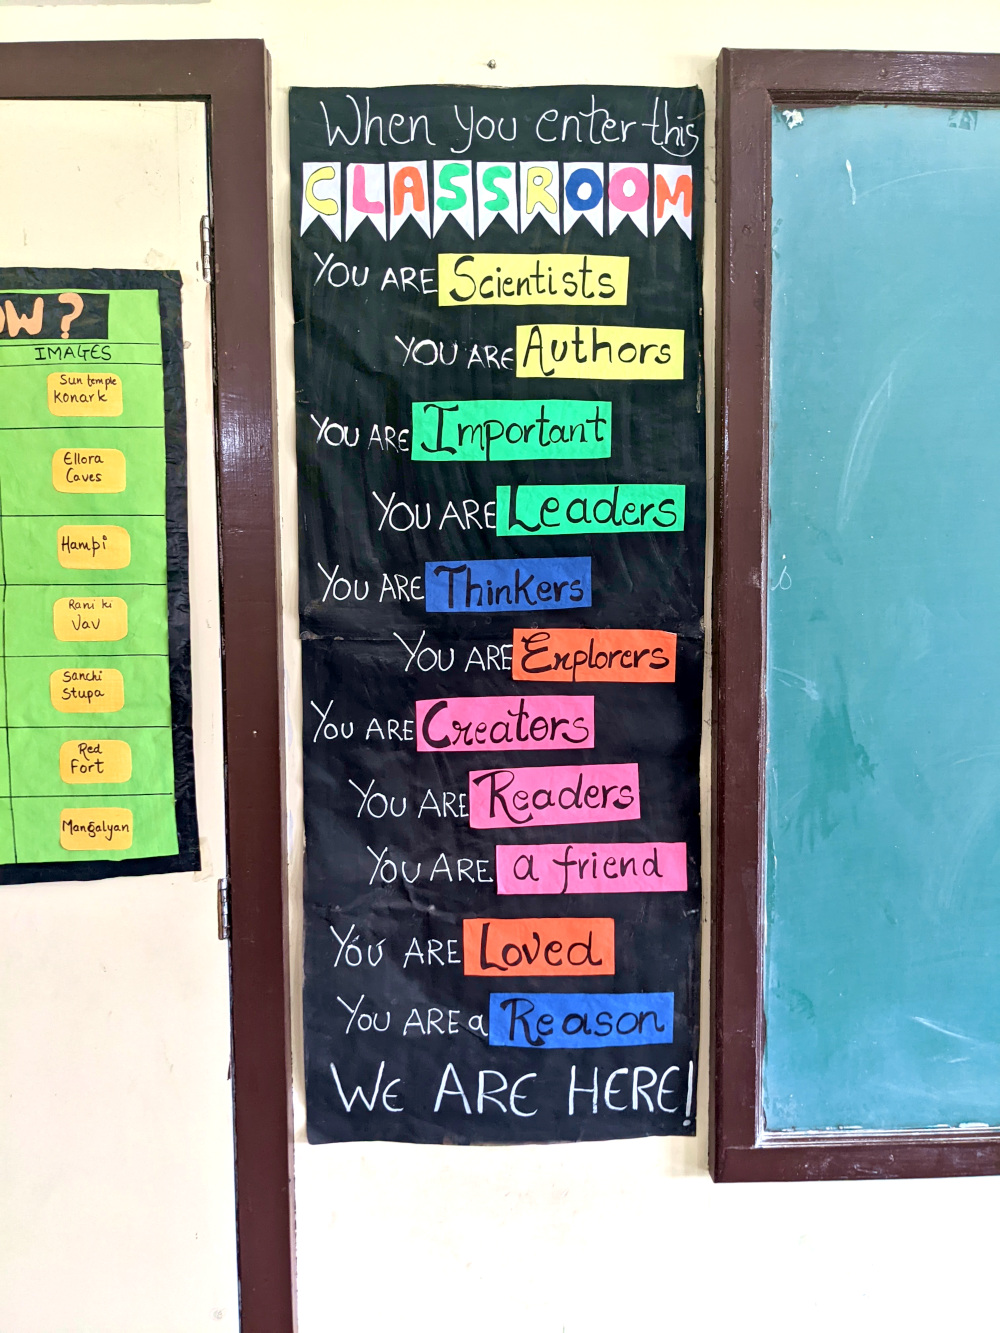 When you enter this
CLASSROOM
YOU ARE Scientists
YOU ARE Authors
YOU ARE Important
YOU ARE Leaders
YOU ARE Thinkers
YOU ARE Explorers
YOU ARE Creators
YOU ARE Readers
YOU ARE a friend
YOU ARE Loved
YOU ARE a Reason
WE ARE HERE!
OW ?
IMAGES
Sun temple
Konark
Ellora
Caves
Hampi
Rani ki
Vav
Sanchi
Stupa
Red
Fort
Mangalyan